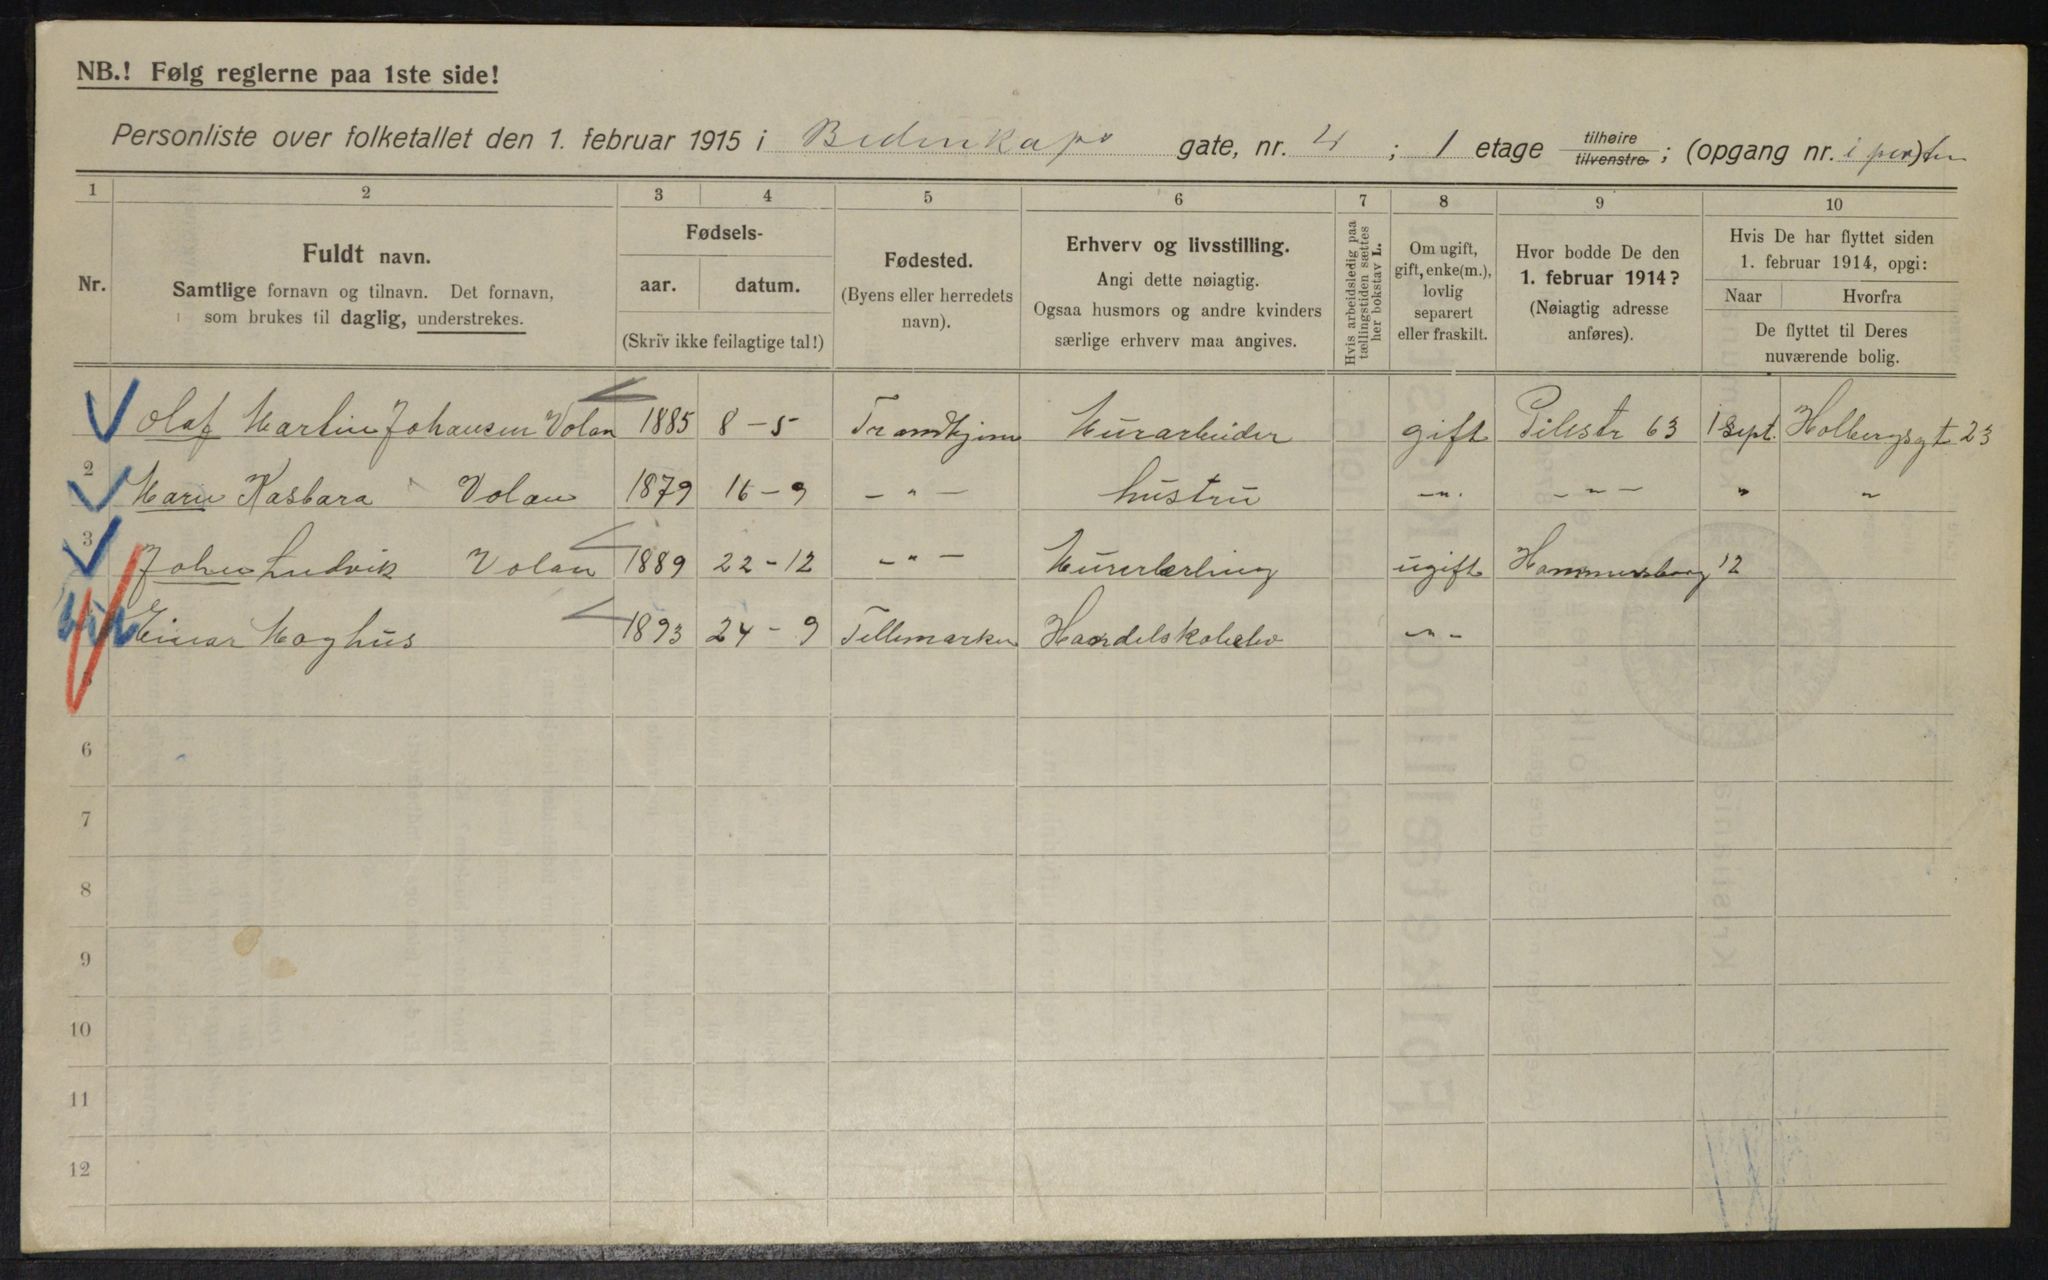 NB.! Følg reglerne paa 1ste side!
Personliste over folketallet den 1. februar 1915 i Bidenkaps gate, nr. 4 ; 1 etage tilhøire tilvenstre ; (opgang nr. i porten)
1 2 3 4 5 6 7 8 9 10
Nr.
Fuldt navn.
Samtlige fornavn og tilnavn. Det fornavn,
som brukes til daglig, understrekes.
Fødsels-
aar. datum.
(Skriv ikke feilagtige tal!)
Fødested.
(Byens eller herredets
navn).
Erhverv og livsstilling.
Angi dette nøiagtig.
Ogsaa husmors og andre kvinders
særlige erhverv maa angives.
Hvis arbeidsledig paa
tællingstiden sættes
her bokstav L.
Om ugift,
gift, enke(m.),
lovlig
separert
eller fraskilt.
Hvor bodde De den
1. februar 1914?
(Nøiagtig adresse
anføres).
Hvis De har flyttet siden
1. februar 1914, opgi:
Naar Hvorfra
De flyttet til Deres
nuværende bolig.
Olaf Martin Johansen Volan 1885 8-5 Trondhjem Murarbeider gift Pilestr 63 1 Sept. Holbergsgt 23
2 Maru Kasbara Volan 1879 16-9 -"- hustru -"- -"- " "
3 Johan Ludvik Volan 1889 22-12 -"- Murerlærling ugift Hammersborg 12
Einar Moghus 1893 24-9 Tellemarken Handelskoleelev -"-
5
6
7
8
9
10
11
12